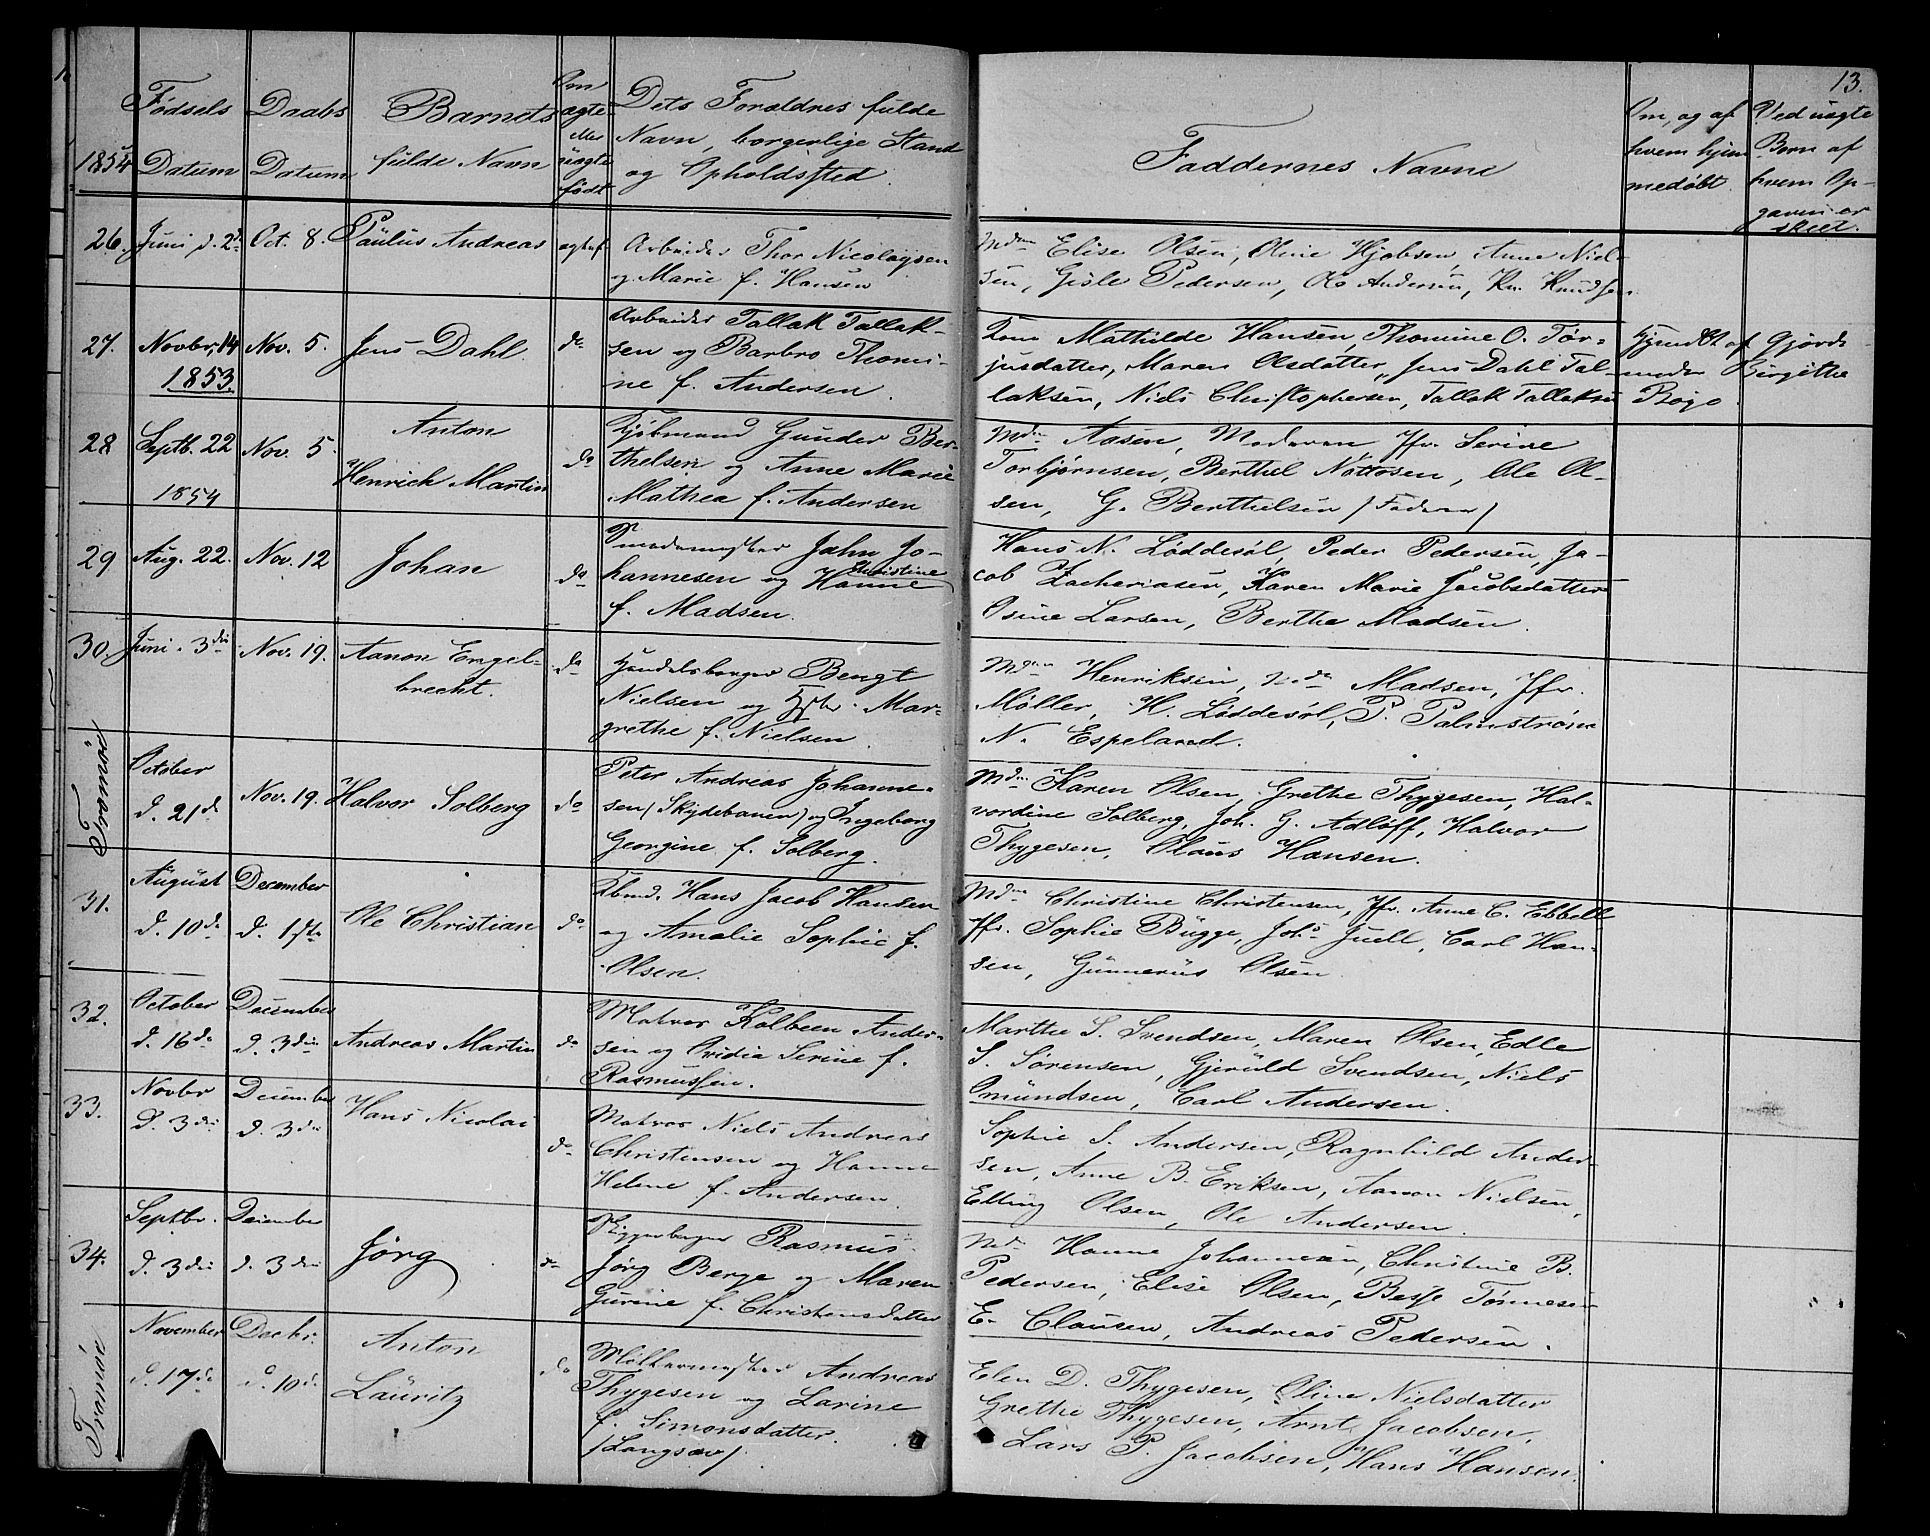 13.
1854
Fødsels Datum
Daabs Datum
Barnets fulde Navn
Om ægte eller uægte født
Dets Forældres fulde
Navn, borgerlige Stand
og Opholdssted.
Faddernes Navne
Om, og af
hvem hjem
medøbt.
Ved uægte
Børn af
hvem Op-
gaven er
skeet.
26. Juni d. 2d Oct. 8. Paulus Andreas ægtef.
Arbeider Thor Nicolaysen
og Marie f. Hansen
Mdm Elise Olsen, Oline Hjobsen, Anne Niel-
sen, Gisle Pedersen, O Andersen, Kn. Knudsen
27. Novbr. 14 1853. Nov. 5. Jens Dahl. do
Arbeider Tallak Tallak-
sen og Barbro Thomi-
ne f. Andersen.
Kone Mathilde Hansen, Thomine O. Tor-
jusdatter, Maren Olsdatter, Jens Dahl Tal-
laksen, Niels Christophersen, Tallak Tallaksen
Hjemdøbt af Gjorde
moder Birgithe
Boge.
28 Septb. 22 1854 Nov. 5. Anton
Henrich Martin do
Kjøbmand Gunder Ber-
thelsen og Anne Marie
Mathea f. Andersen
Mdm Aasen, Moderen, Jfr. Serine
Torbjørnsen, Berthel Nottosen, Ole Ol-
sen, G. Berthelsen /Faderen/
29 Aug. 22. Nov. 12 Johan do
Smedemester Jahn Jo-
hannesen og Hanne Christine
f. Madsen.
Hans N. Løddesøl, Peder Pedersen, Ja-
cob Zachariasen, Karen Marie Jacobsdatter
Osine Larsen, Berthe Madsen.
30. Juni 3die Nov. 19. Aanon Engel-
brecht. do
Handelsborger Bengt
Nielsen og Hstr. Mar-
grethe f. Nielsen.
Mdm Henriksen, Mdm Madsen, Jfr.
Møller, H. Løddesøl, P. Palmstrøm
N. Espeland.
Tromøe
October
d. 21de Nov. 19. Halvor Solberg do
Peter Andreas Johanne-
sen (Skydebanen) og Ingeborg
Georgine f. Solberg.
Mdm Karen Olsen, Grethe Thygesen, Hal-
vordine Solberg, Joh. G. Adloff, Halvor
Thygesen, Olaus Hansen.
31. August
d. 10de December
d. 1ste Ole Christian do
Kbmd. Hans Jacob Hansen
og Amalie Sophie f.
Olsen.
Mdm Christine Christensen, Jfr. Anne C. Ebbell
Jfr. Sophie Bugge, Johs Juell, Carl Han-
sen, Gunnerius Olsen.
32. October
d. 16de December
d. 3die Andreas Martin do
Matros Kolbeen Ander-
sen og Ovidia Serine f.
Rasmussen.
Marthe S. Svendsen, Maren Olsen, Edle
S. Sørensen, Gjeruld Svendsen, Niels
Omundsen, Carl Andersen.
33. Novbr
d. 3die December
d. 3die Hans Nicolai do
Matros Niels Andreas
Christensen og Hanne
Helene f. Andersen
Sophie S. Andersen, Ragnhild Ander-
sen, Anne B. Eriksen, Aanon Nielsen,
Elling Olsen, Ole Andersen.
34. Septbr.
d. 3die December
d. 3die Jörg do
Byggeborger Rasmus
Jörg Berge og Maren
Gurine f. Christensdatter
Md. Hanne Johannesen, Christine B.
Pedersen, Elise Olsen, Besse Tönnesen
E. Clausen, Andreas Pedersen.
Tromøe
November
d. 17de Decbr.
d. 10de Anton
Lauritz do
Møllermester Andreas
Thygesen og Larine
f. Simonsdatter.
/Langsæv/
Elen D. Thygesen, Oline Nielsdatter
Grethe Thygesen, Arnt Jacobsen,
Lars P. Jacobsen, Hans Hansen.